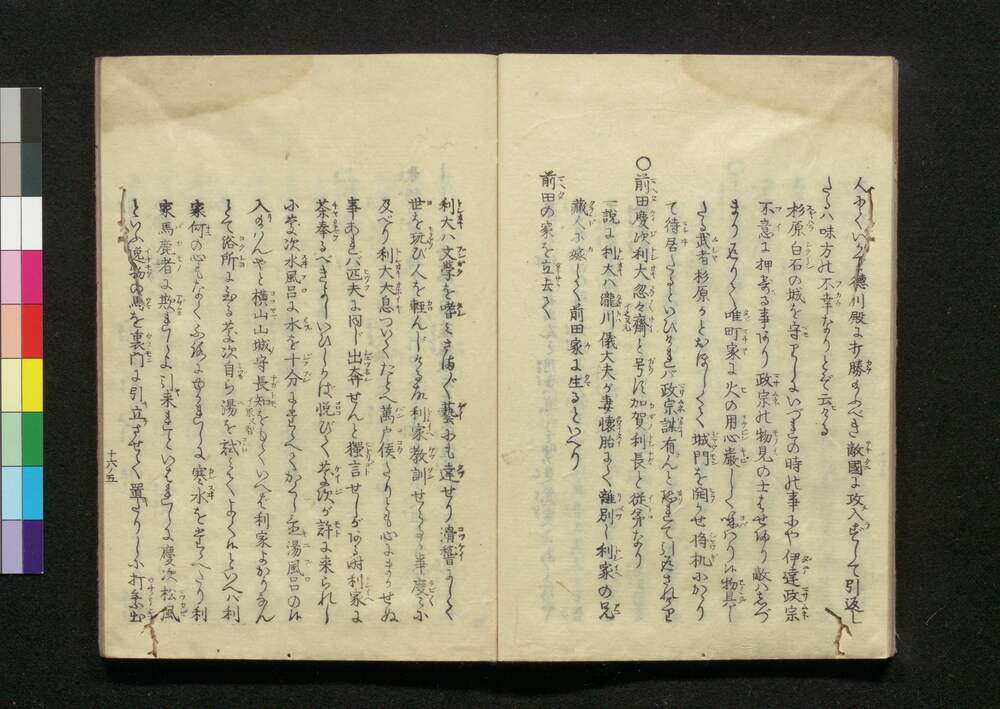 んにくいかで徳川殿に打勝のべき敵國に攻入ずして引返し
たるハ味方の不幸なりとぞ云々
杉原白石の城を守りしハいづれの時の事にや 伊達政宗
不意に押寄る事あり 政宗の物見の士もせ帰り 敵ハしづ
まり返りて唯町家に火の用心厳しく 物具し
たる武者杉原かとおぼしくて城門を開かせ将机にかゝり
て待居たるといひけれバ政宗謀有んと恐れて引返されけり
〇前田慶次利大忽々齋と号ス加賀利長と従弟なり
一説に利大ハ瀧川儀大夫が妻懐胎にて離別し利家の兄
蔵人に嫁して前田家に生るといへり
前田の家を立去る
利大ハ文學を嗜ミさまざまの藝にも達せり滑稽にして
世を玩び人を軽んじける故利家教訓せらるゝ事度々に
及べり利大大息つひてたとへ萬戸侯たりとも心にまかせぬ
事あれバ匹夫に同じ出奔せんと獨言せしがある時利家に
茶奉るべきよしいひしかば悦びて慶次が許に来られし
に慶次水風呂に水を十分にたゝへさせてかくて湯風呂のに
入のりんやと横山山城守長知をもていへバ利家よかりなん
とて浴所に至る慶次自ら湯を試ミてよくよしといへバ利
家何の心もなくふろに入られしに寒水をたゝへたり利
家馬鹿者に欺れしよ引来れといはれしに慶次松風
といふ逸物の馬を裏門に引立させて置たりしに打乗出
十六ノ五